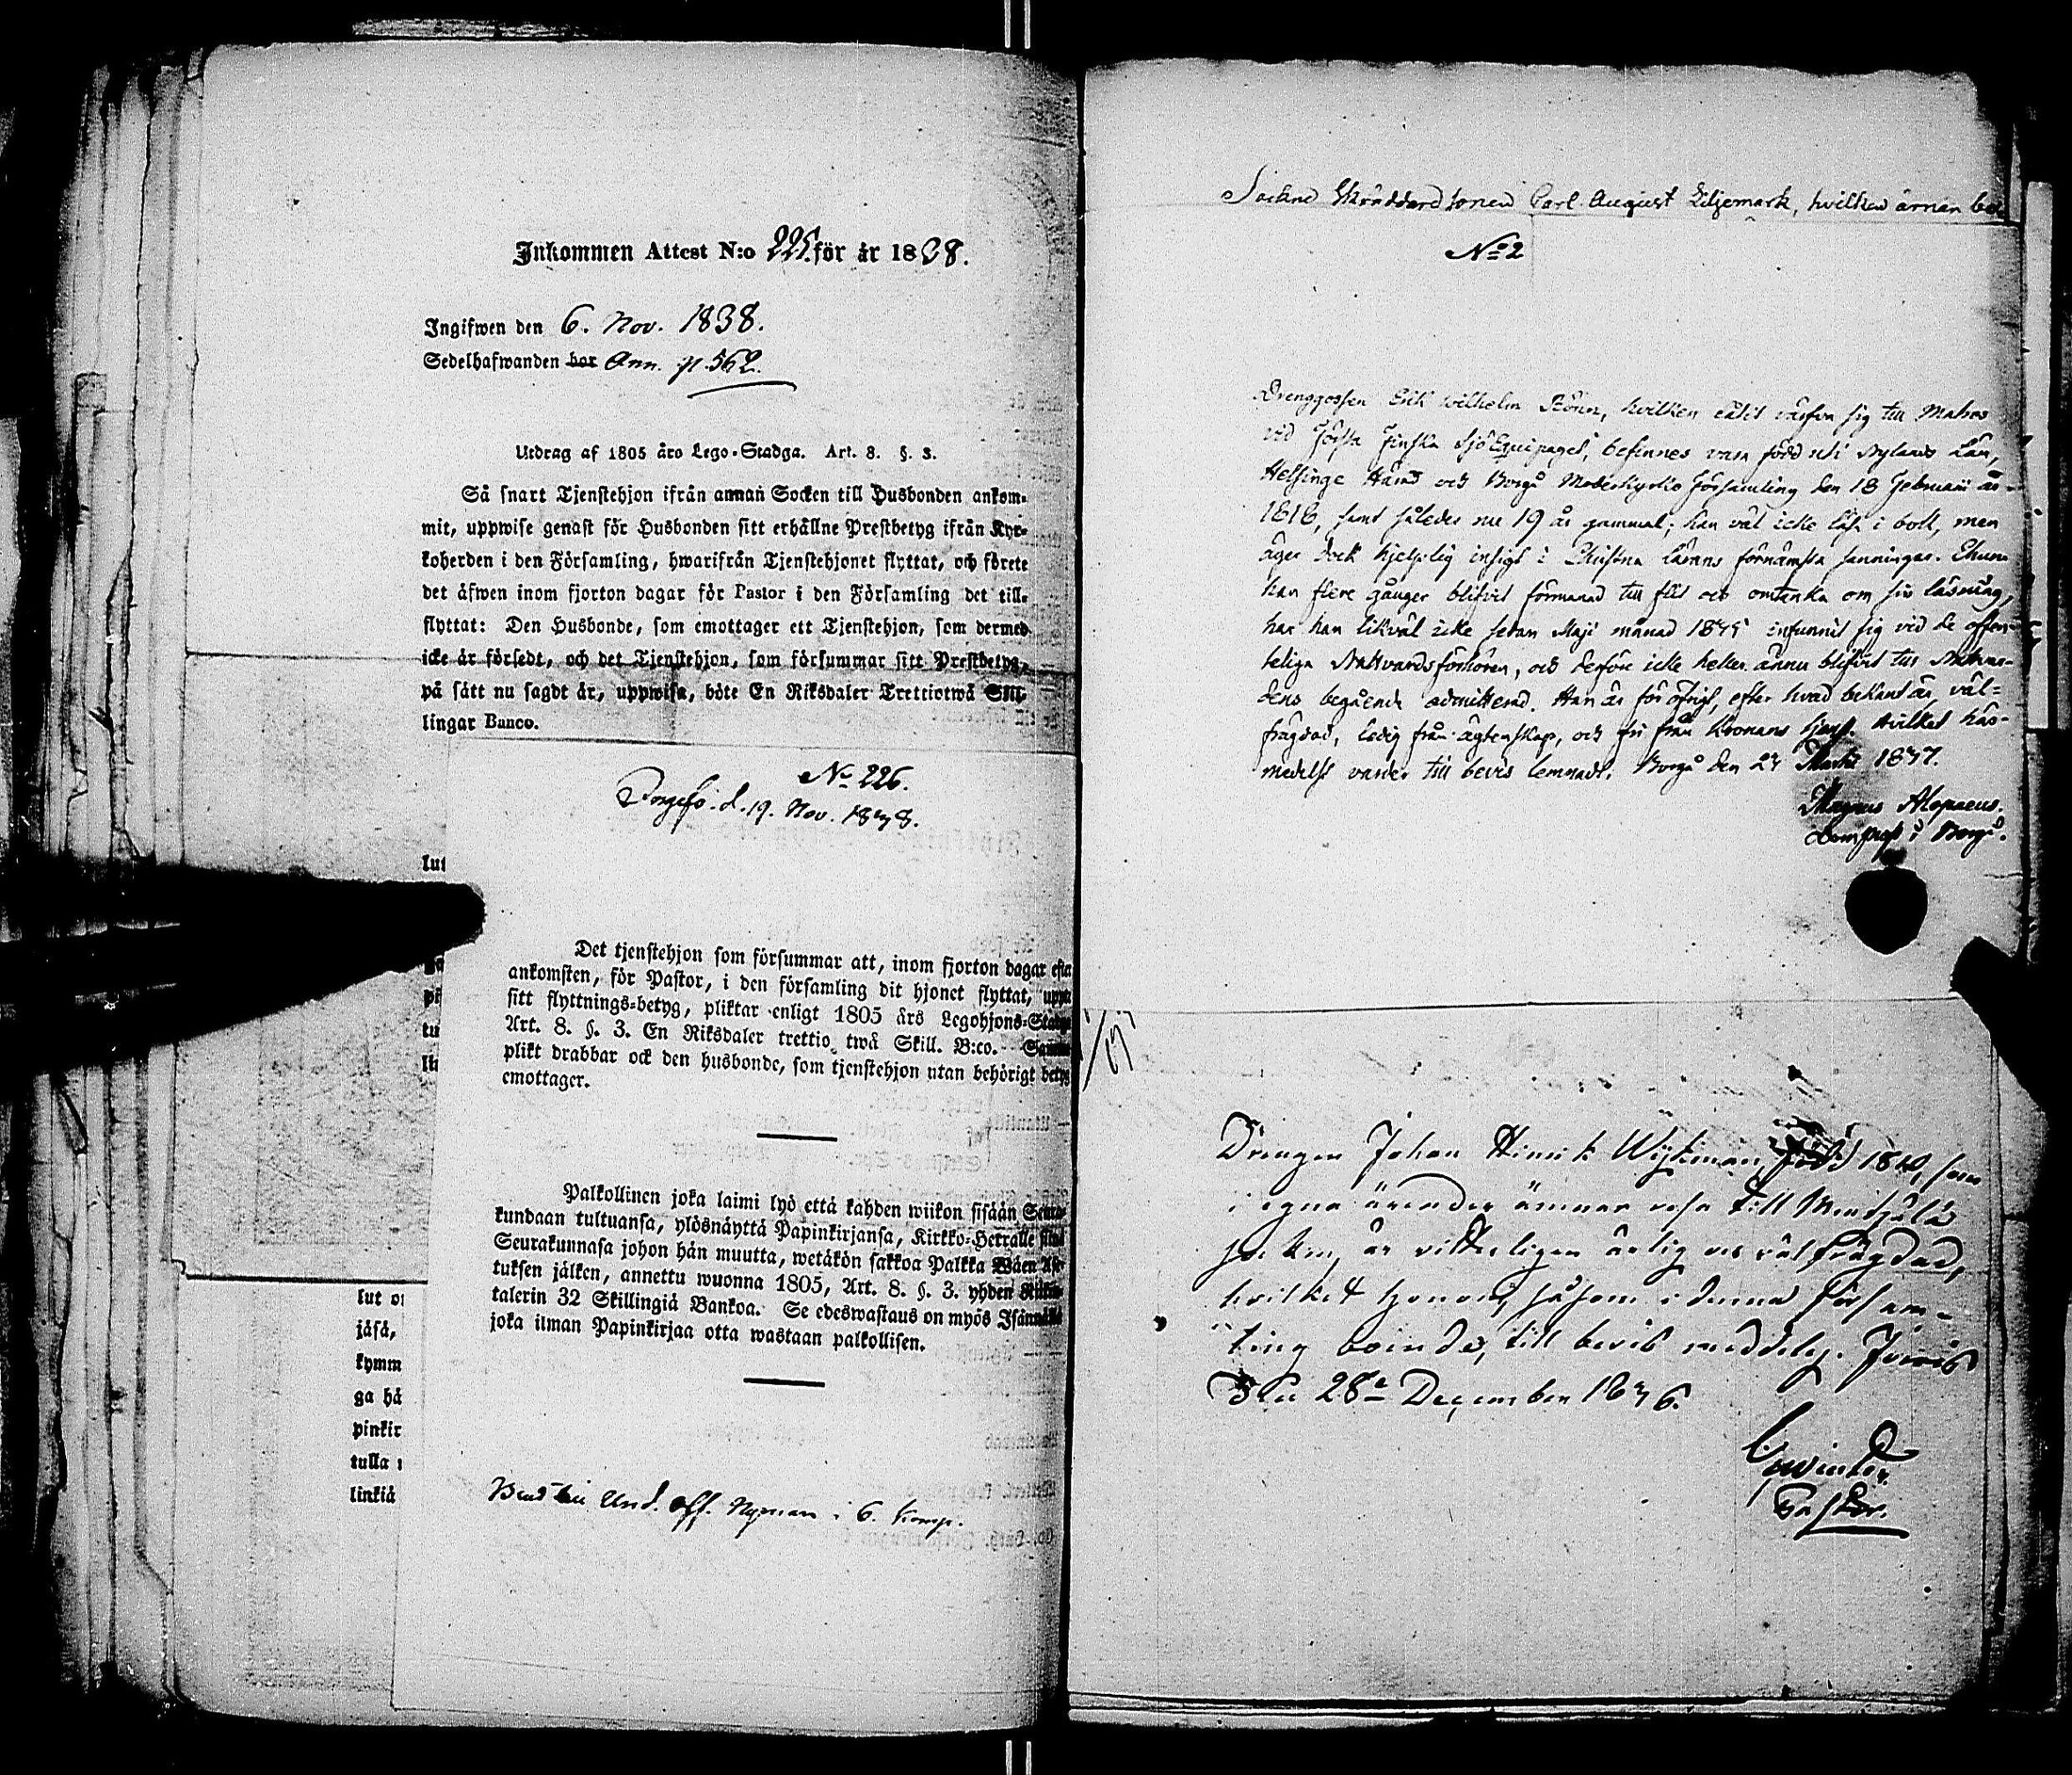 Inkommen Attest N:o 225. för år 1838.
Ingifwen den 6. Nov. 1838.
Sedelhafwanden bor Ann. p. 562.
Utdrag af 1805 åro Lego-Stadga. Art. 8. §. 3.
Så snart Tjenstehjon ifrån annan Socken till Husbonden ankom-
mit, uppwise genast för Husbonden sitt erhållne Prestbetyg ifrån Kyr-
koherden i den Församling, hwarifrån Tjenstehjonet flyttat, och förete
det äfwen inom fjorton dagar för Pastor i den Församling det till-
flyttat: Den Husbonde, som emottager ett Tjenstehjon, som dermed
icke är försedt, och det Tjenstehjon, som försummar sitt Prestbetyg,
på sätt nu sagdt är, uppwisa, böte En Riksdaler Trettiotwå Skil-
lingar Banco.
N:o 226.
d. 19. Nov. 1838.
lut
Det tjenstehjon som försummar att, inom fjorton dagar efter
ankomsten, för Pastor, i den församling dit hjonet flyttat, uppte
sitt flyttnings-betyg, pliktar enligt 1805 års Legohjons-Stadga
Art. 8. §. 3. En Riksdaler trettio twå Skill. B:co. Samma
plikt drabbar ock den husbonde, som tjenstehjon utan behörigt betyg
emottager.
Palkollinen joka laimi lyö että kahden wiikon sisään Seura-
kundaan tultuansa, ylösnäyttä Papinkirjansa, Kirkko-Herralle siinä
Seurakunnasa johon hän muutta, wetäkön sakkoa Palkka Wäen Ase-
tuksen jälken, annettu wuonna 1805, Art. 8. §. 3. yhden Riksi-
talerin 32 Skillingiä Bankoa. Se edeswastaus on myös Isännällä
joka ilman Papinkirjaa otta wastaan palkollisen.
lut
jäsä,
kymm
ga hä
pinkir
tulla
linkiä
Und. off. Nyman i 6. Komp.
Socknd Skräddard sonen Carl August Liljemark, hvilken ärnar be
N:o 2
Drenggossen Erik Wilhelm Rönn, hvilken låtit värfva sig till Matros
vid Första Finska SjöEquipaget, befinnes vara född uti Nylands Län,
Helsinge Härad och Borgå Moderkyrko Församling den 18 Februarii år
1818, samt således nu 19 år gammal; kan väl icke läsa i bok, men
äger dock hjelplig insigt i Christna Lärans förnämsta sanningar. Ehuru
han flere gånger blifvit förmanad till flit och omtanka om sin läsning,
har han likväl icke sedan Maji månad 1835 infunnit sig vid de offen-
teliga Nattvardsförhören, och derföre icke heller ännu blifvit till Nattvar-
dens begående admitterad. Han är för öfrigt, efter hvad bekant är, väl-
frägdad, ledig från ägtenskap, och fri från Kronans tjenst. Hvilket här-
medelst varder till bevis lemnadt. Borgå den 23 Martii 1837.
Magnus Alopaeus.
Domprost i Borgå.
Drengen Johan Hinrik Wijkman, född 1810, som
i egna ärender ämnar resa till Mändsälä
Socken, är vitterligen ärlig och välfrägdad,
hvilket honom, såsom i denna Försam-
ling boende, till bevis meddelas. Jorois
Den 28:e December 1836.
Pastor.